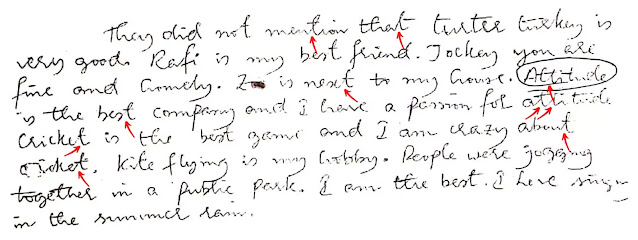 They did not mention that turter turkey is
very good. Rafi is my best friend. Jockey you are
fine and homely. Zoo is next to my house. Attitude
is the best company and I have a passion for attitude
Cricket is the best game and I am crazy about
cricket. Kite flying is my hobby. People were jogging
together in a public park. I am the best. I love
in the summer rain.